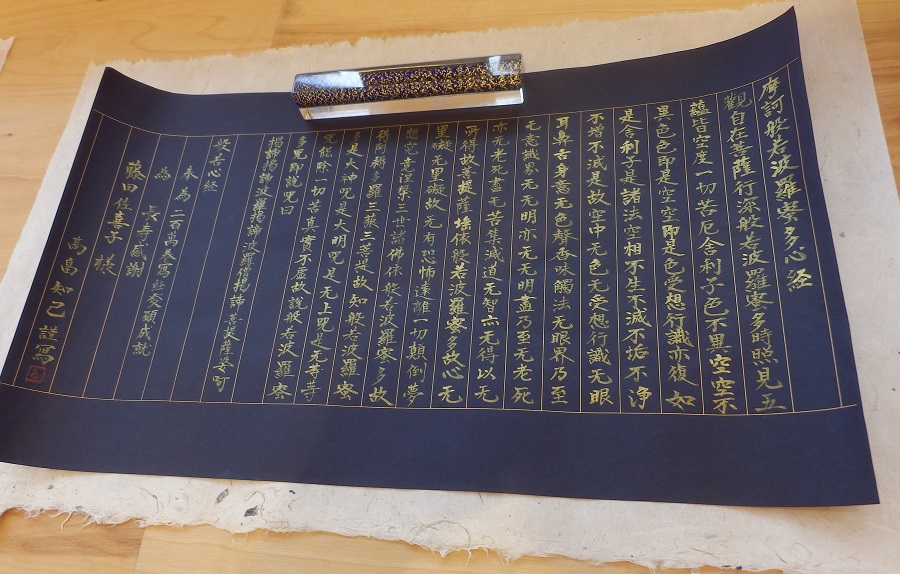 摩訶般若波羅蜜多心経
觀自在菩薩行深般若波羅蜜多時照見五
蘊皆空度一切苦厄舍利子色不異空空不
異色色即是空空即是色受想行識亦復如
是舍利子是諸法空相不生不滅不垢不浄
不増不減是故空中无色无受想行識无眼
耳鼻舌身意无色聲香味觸法无眼界乃至
无意識界无无明亦无无明盡乃至无老死
亦无老死盡无苦集滅道无智亦无得以无
所得故菩提薩埵依般若波羅蜜多故心无
罣礙无罣礙故无有恐怖遠離一切顛倒夢
想究竟涅槃三世諸佛依般若波羅蜜多故
得阿耨多羅三藐三菩提故知般若波羅蜜
多是大神呪是大明呪是无上呪是无等等
呪能除一切苦真實不虚故説般若波羅蜜
多呪即説呪曰
揭諦揭諦波羅揭諦波羅僧揭諦菩提薩婆訶
般若心経
奉為 二百萬巻寫経發願成就
為 長寿感謝
藤田佐喜子様
高畠知己謹寫